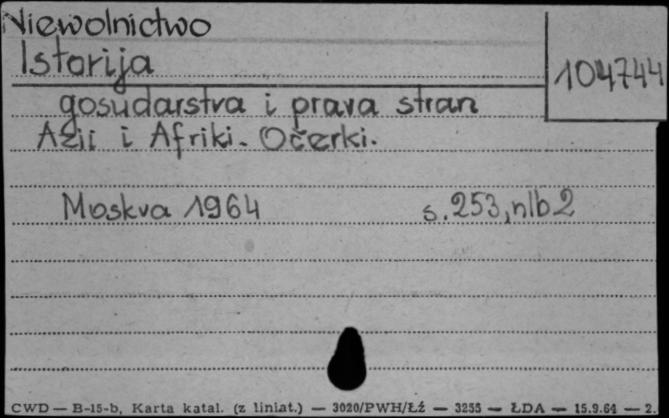 Niewolnictwo
Istorija
104744
gosudarstva i prava stran
Azii i Afriki. Očerki.
Moskva 1964 s. 253, nlb 2
CWD — B-15-b, Karta katal. (z liniat.) — 3020/PWH/ŁŹ — 3255 — ŁDA — 15.9.64 — 2.